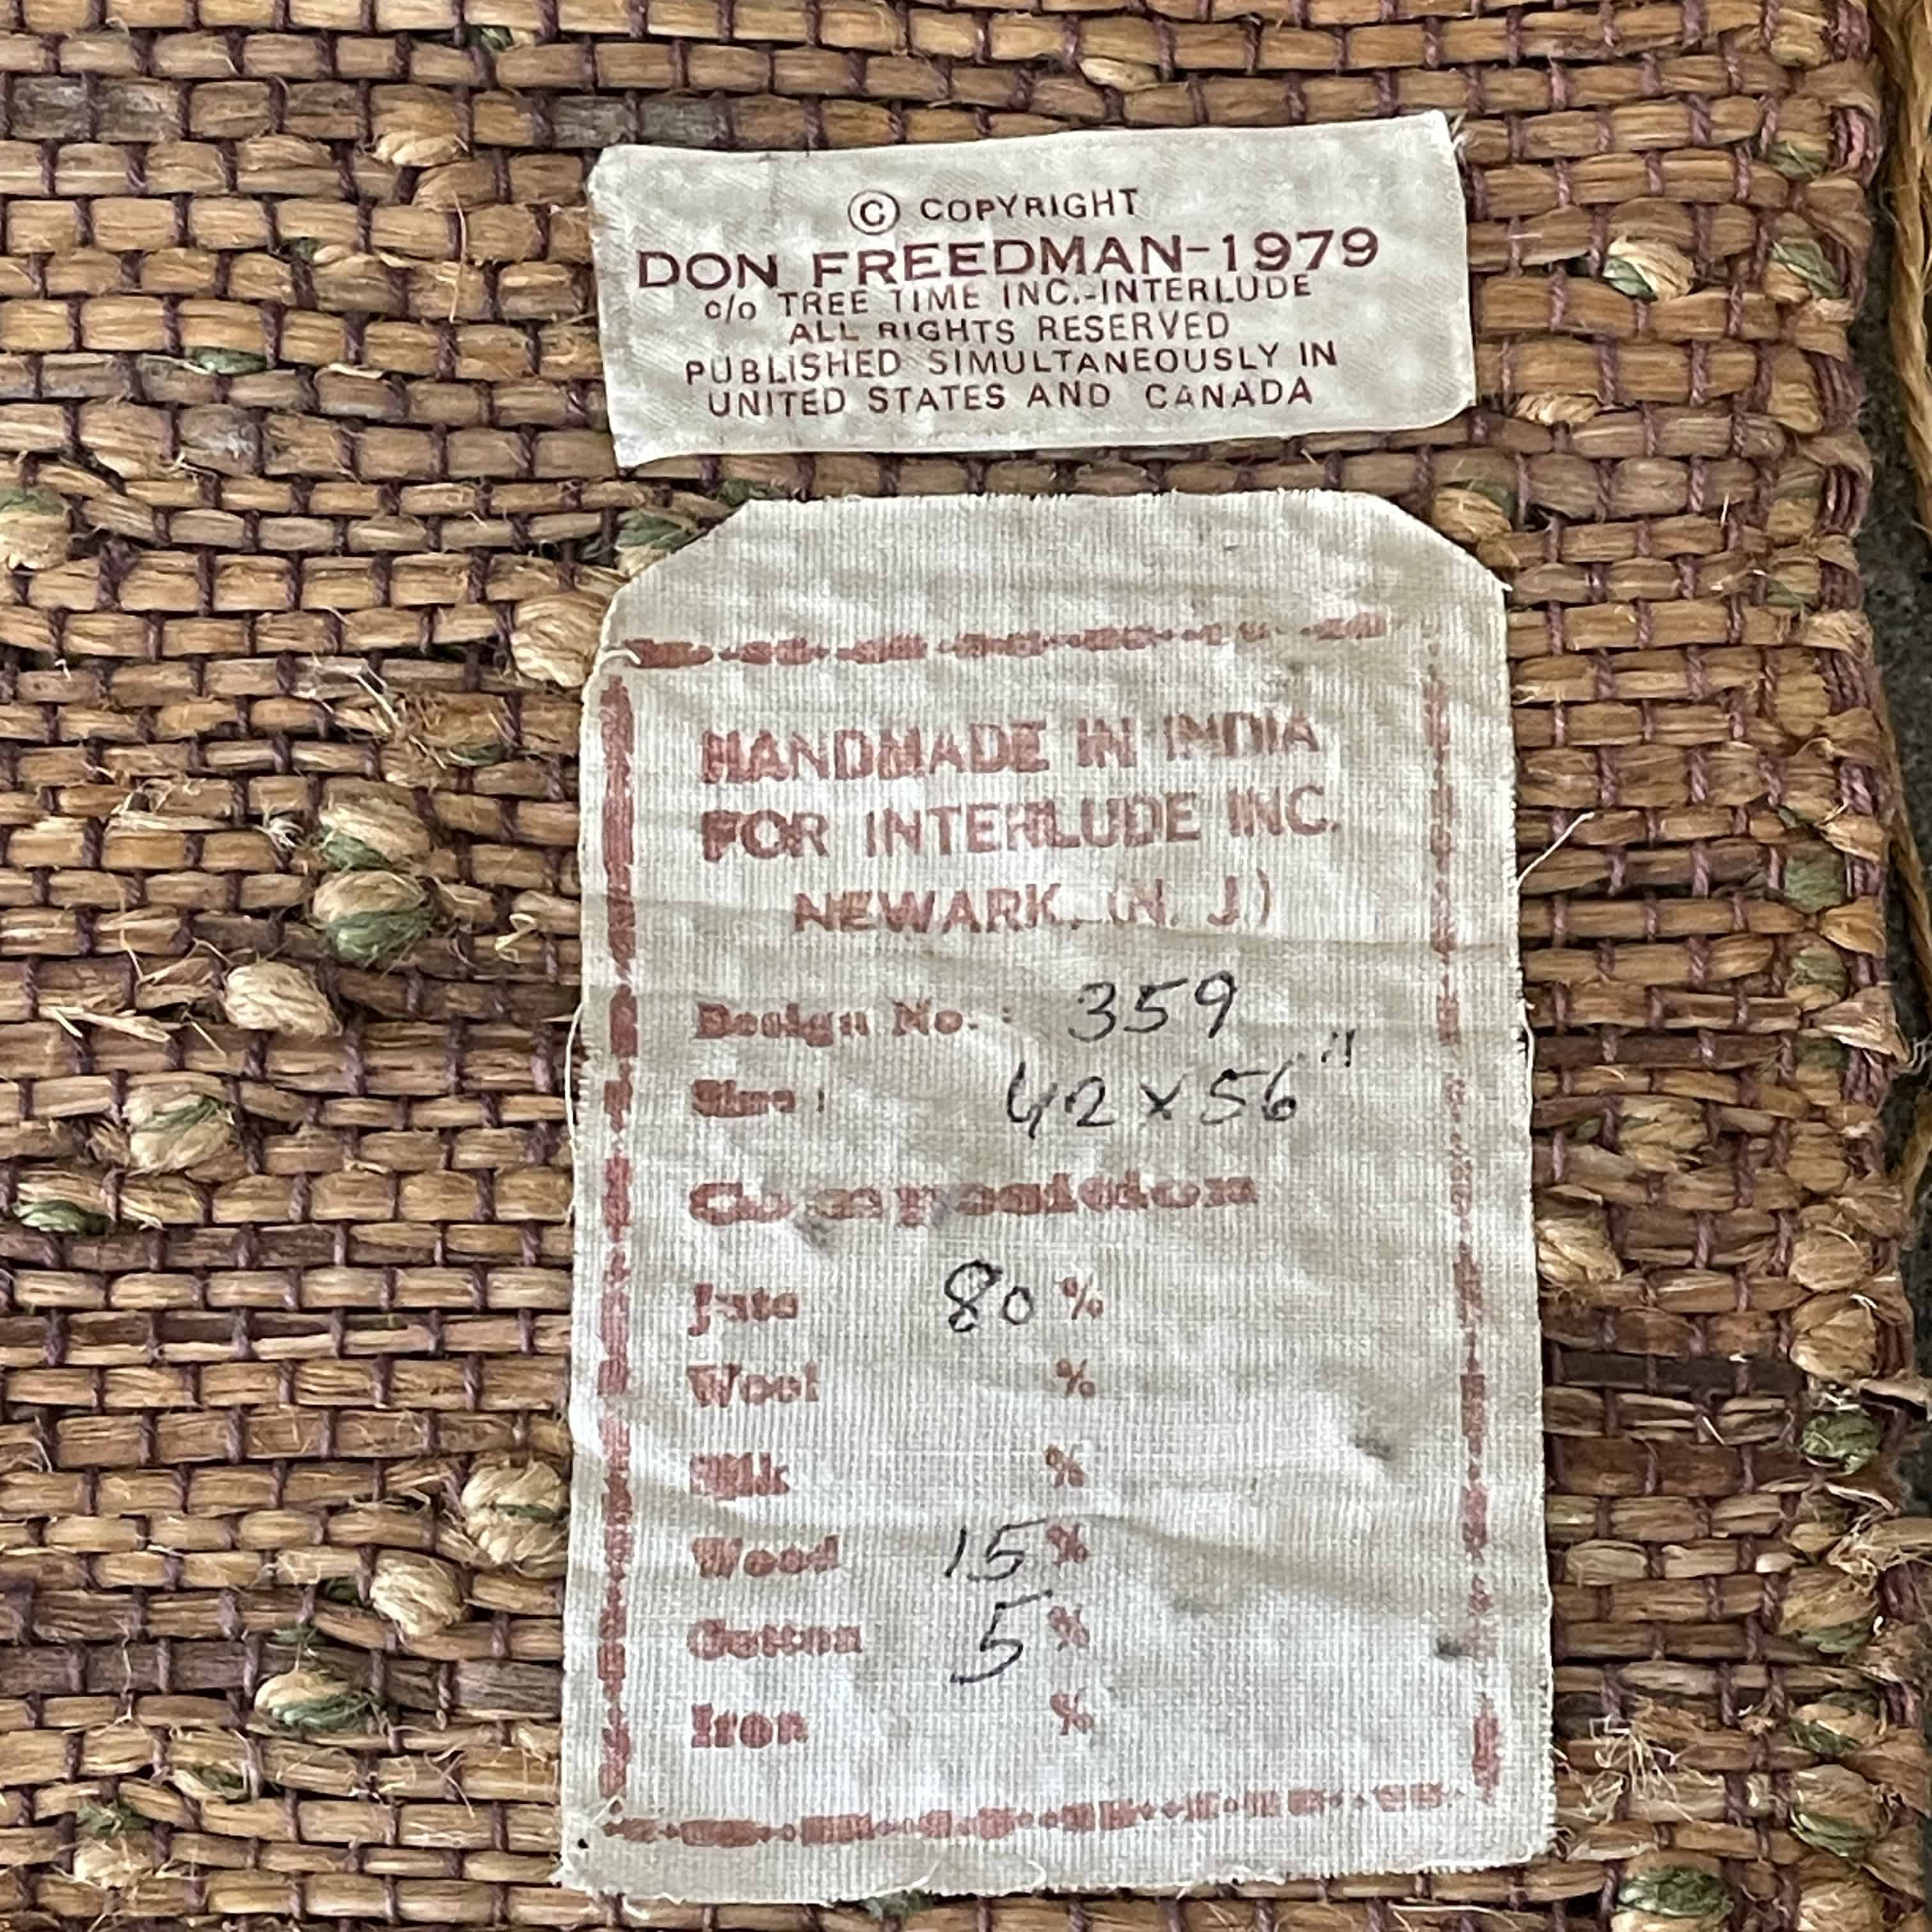 © COPYRIGHT
DON FREEDMAN-1979
c/o TREE TIME INC.-INTERLUDE
ALL RIGHTS RESERVED
PUBLISHED SIMULTANEOUSLY IN
UNITED STATES AND CANADA
HANDMADE IN INDIA
FOR INTERLUDE INC.
NEWARK, (N. J.)
Design No. : 359
Size : 42 x 56"
Composition
Jute 80 %
Wool %
Silk %
Wood 15 %
Cotton 5 %
Iron %